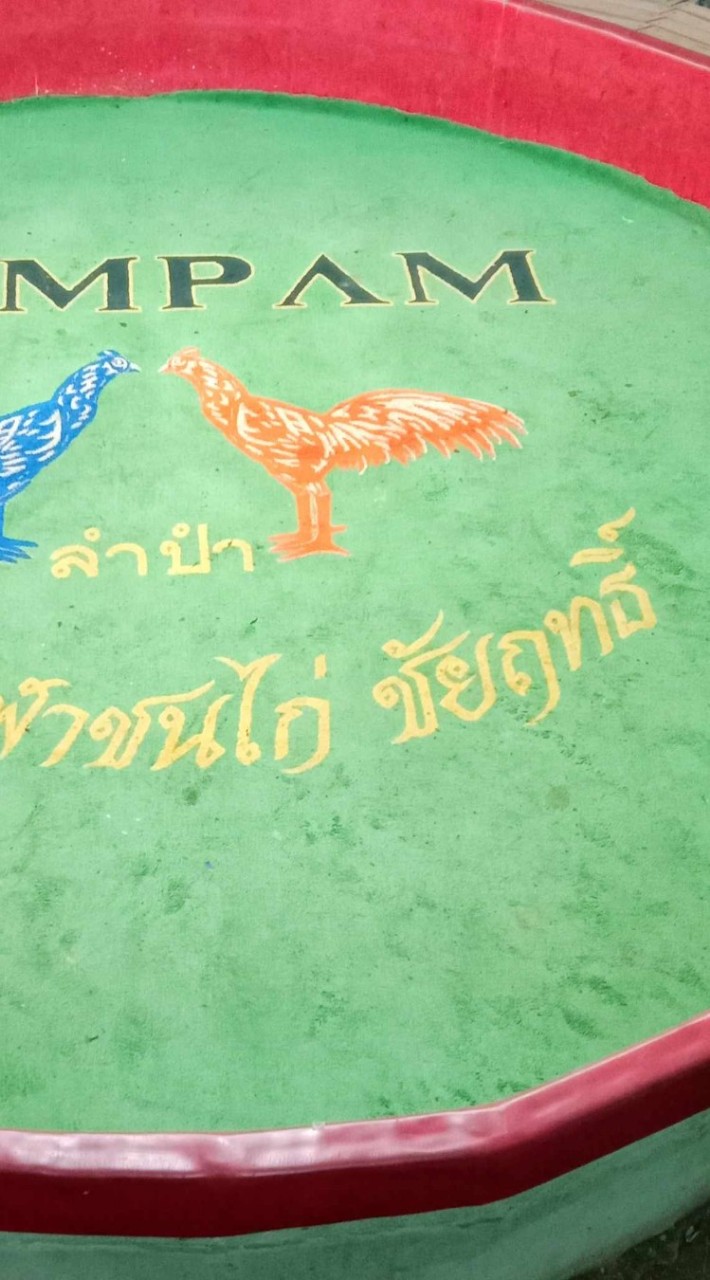 MPAM
ลำปำ
ฟ้าชนไก่ ชัยฤทธิ์